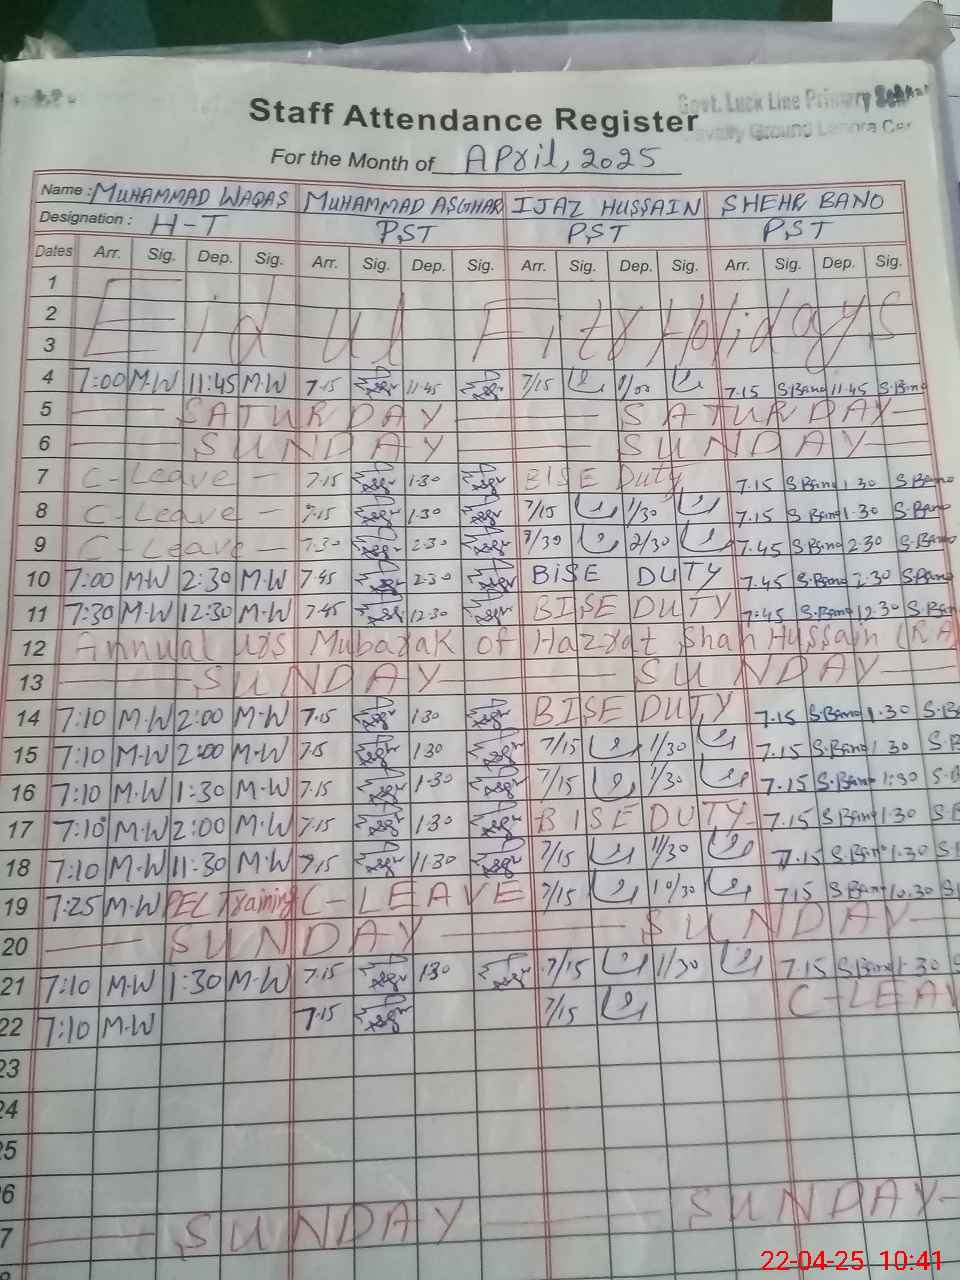 Govt. Luck Line Primary
Ground
Staff Attendance Register
For the Month of APril, 2025
Name : MUHAMMAD WAQAS MUHAMMAD ASGHAR IJAZ HUSSAIN SHEHR BANO
Designation : H-T PST PST PST
Dates Arr. Sig. Dep. Sig. Arr. Sig. Dep. Sig. Arr. Sig. Dep. Sig. Arr. Sig. Dep. Sig.
1
2 Eid ul Fitr Holidays
3
4 7:00 M.W 11:45 M.W 7.15 11.45 7/15 7.15 S.Bano 11.45 S.Bano
5 SATURDAY SATURDAY
6 SUNDAY SUNDAY
7 C-Leave - 7.15 1.30 BISE Duty 7.15 S.Bano 1.30 S.Bano
8 C-Leave - 7.15 1.30 7/15 1/30 7.15 S.Bano 1.30 S.Bano
9 C-Leave - 7.30 2.30 7/30 2/30 7.45 S.Bano 2.30 S.Bano
10 7:00 M.W 2:30 M.W 7.45 2.30 BISE DUTY 7.45 S.Bano 2.30 S.Bano
11 7:30 M.W 12:30 M.W 7.45 12.30 BISE DUTY 7:45 S.Bano 12.30 S.Bano
12 Annual Urs Mubarak of Hazrat Shah Hussain (RA)
13 SUNDAY SUNDAY
14 7:10 M.W 2:00 M.W 7.15 1.30 BISE DUTY 7.15 S.Bano 1.30 S.B
15 7:10 M.W 2:00 M.W 7.15 1.30 7/15 1/30 7.15 S.Bano 1.30 S.B
16 7:10 M.W 1:30 M.W 7.15 1.30 7/15 1/30 7.15 S.Bano 1:30 S.B
17 7:10 M.W 2:00 M.W 7.15 1.30 BISE DUTY 7.15 S.Bano 1.30 S
18 7:10 M.W 11:30 M.W 7.15 11.30 7/15 11/30 7.15 S.Bano S
19 7:25 M.W PEC Training C-LEAVE 7/15 10/30 7.15 S.Bano 10.30 S
20 SUNDAY SUNDAY
21 7:10 M.W 1:30 M.W 7.15 1.30 7/15 1/30 7.15 S.Bano 1.30 S
22 7:10 M.W 7.15 7/15 C-LEAV
23
24
25
6
7 SUNDAY SUNDAY
22-04-25 10:41